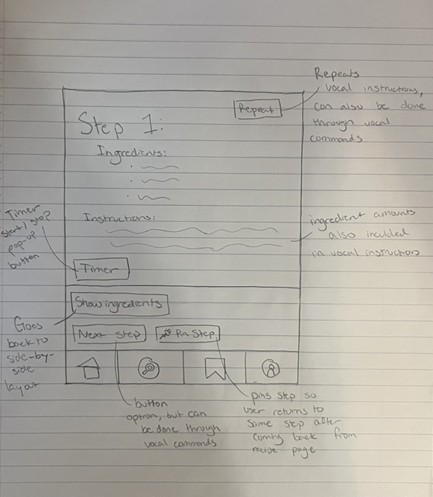 Repeats
vocal instructions,
can also be done
through vocal
commands
Repeat
Step 1:
Ingredients:
Instructions:
Timer
start/stop?
pop-up
button
ingredient amounts
also included
in vocal instructions
Timer
Show ingredients
Goes
back to
side-by-
side
layout
Next Step
Pin Step
button
option, but can
be done through
vocal commands
pins step so
user returns to
same step after
coming back from
recipe page